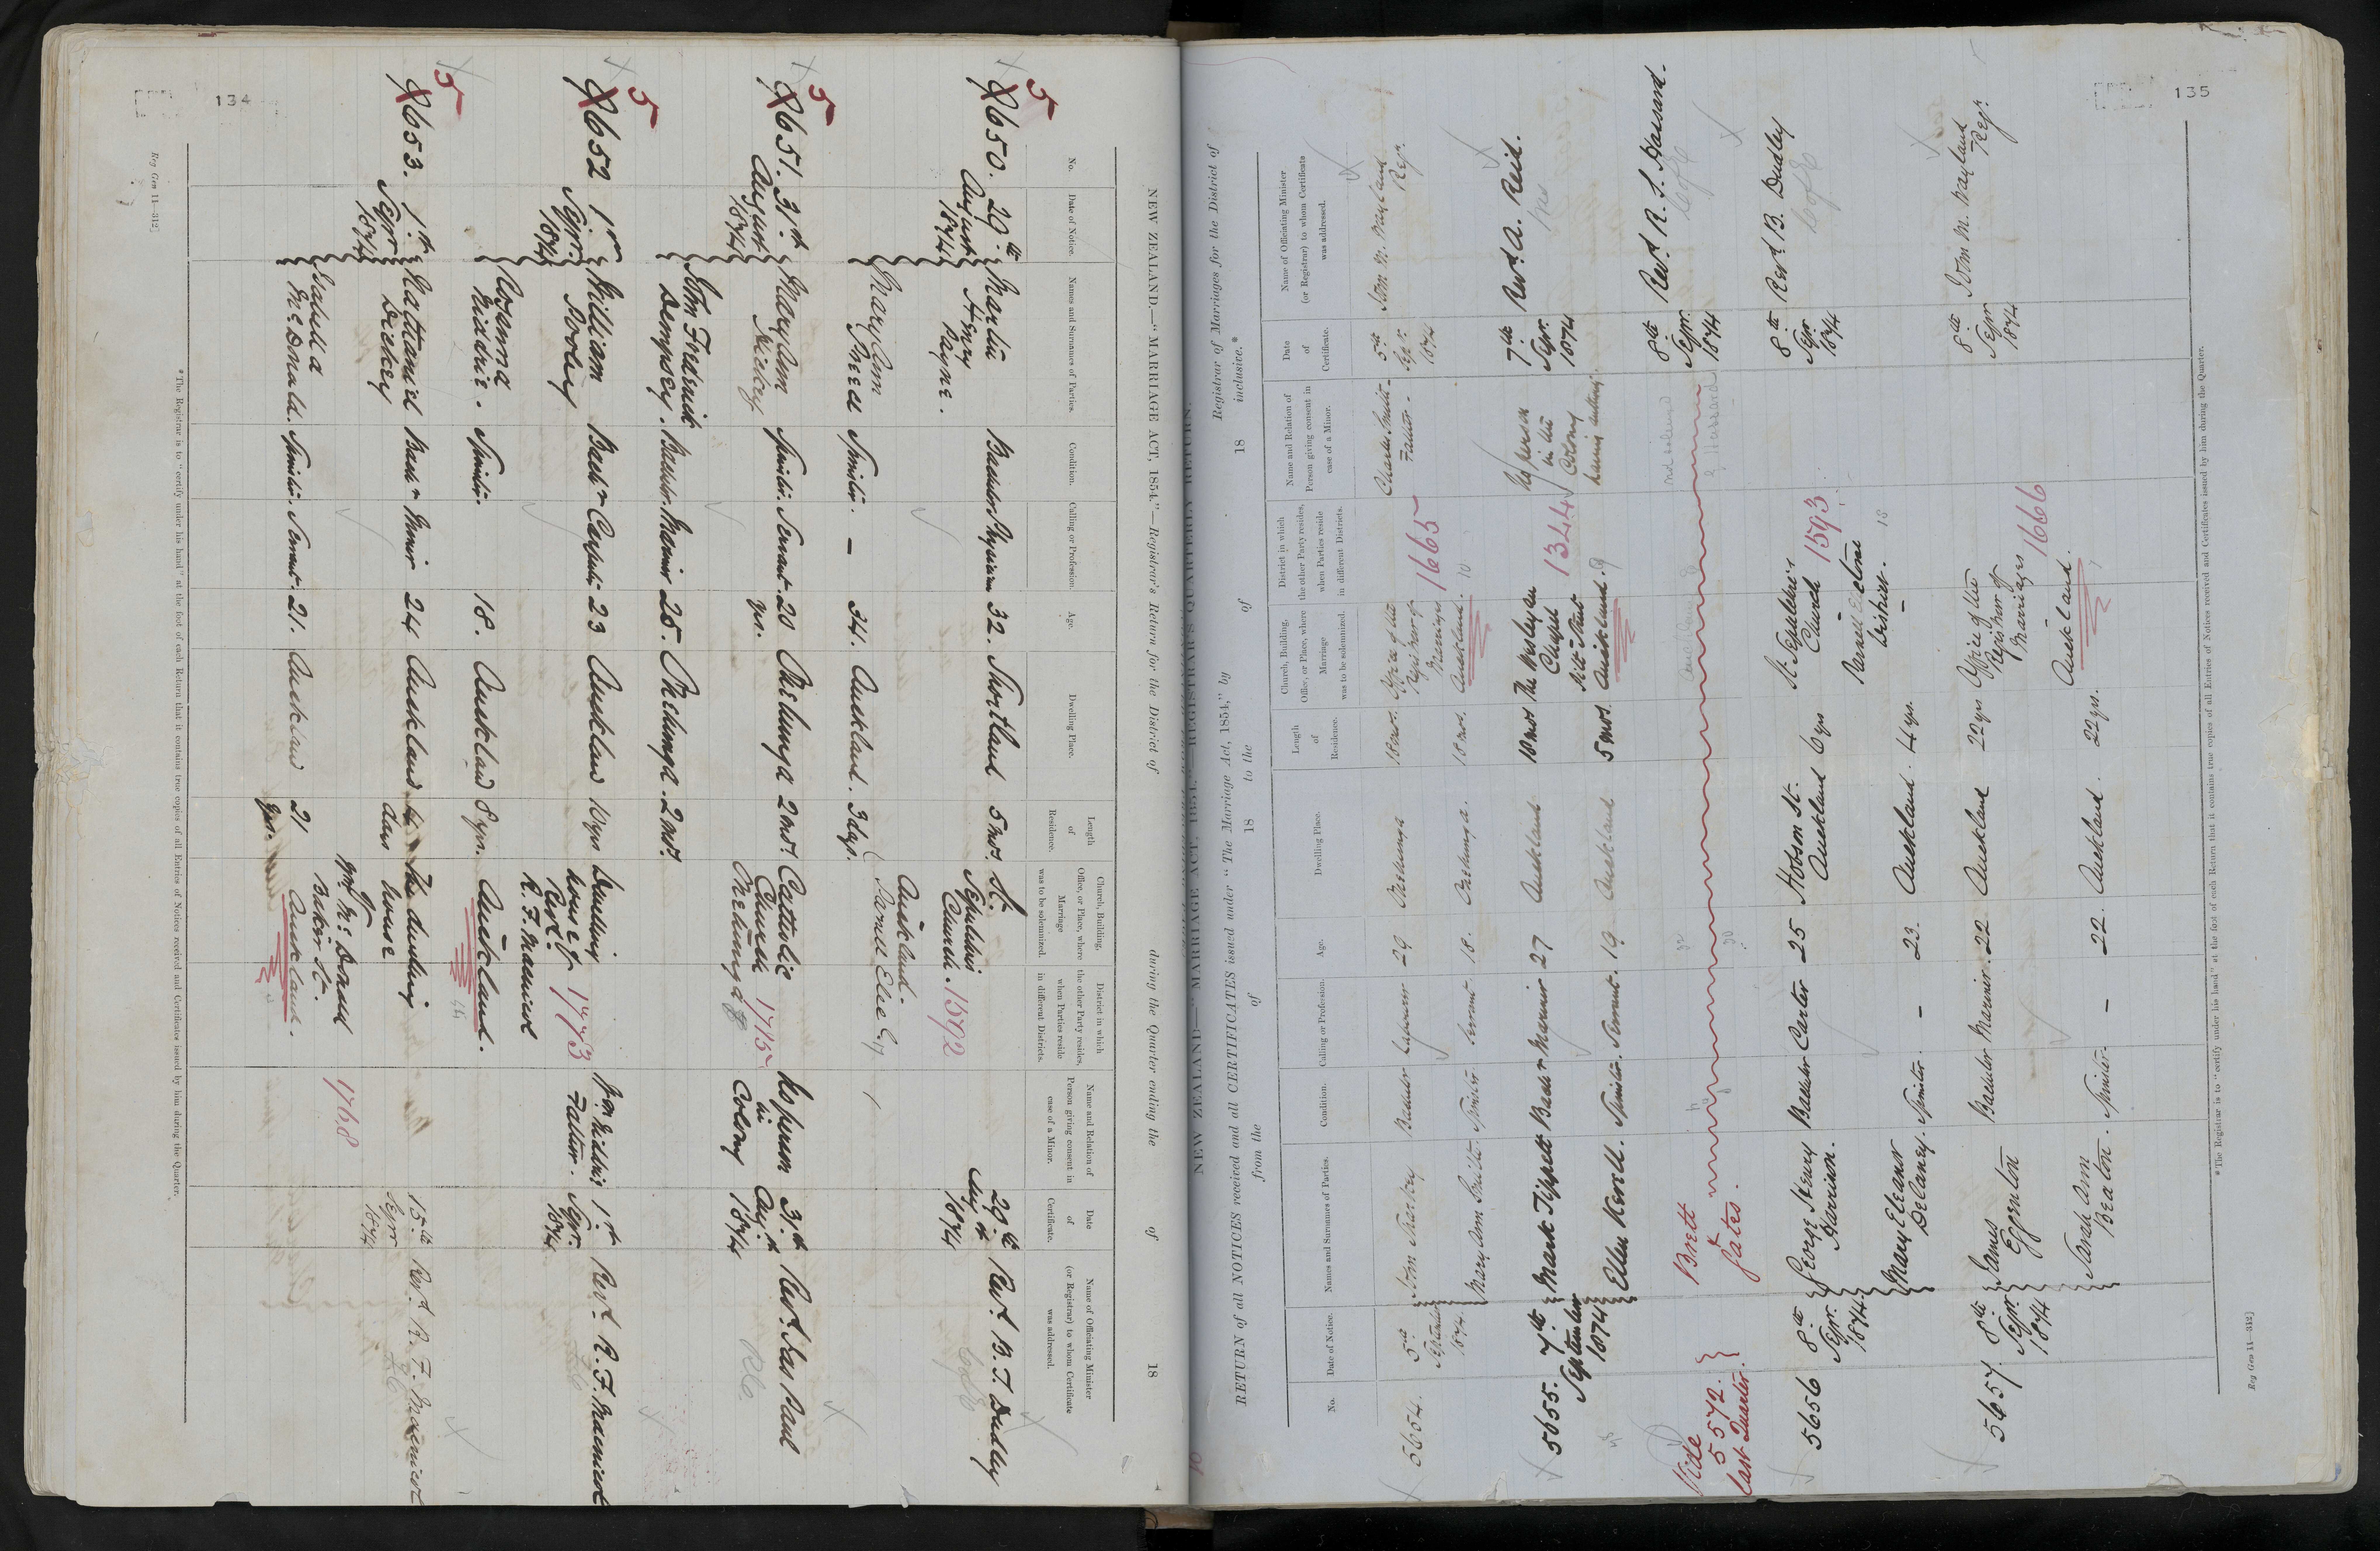 134
NEW ZEALAND.—"MARRIAGE ACT, 1854."—Registrar's Return for the District of during the Quarter ending the of 18
No.
Date of Notice.
Names and Surnames of Parties.
Condition.
Calling or Profession.
Age.
Dwelling Place.
Length of Residence.
Church, Building, Office, or Place, where Marriage was to be solemnized.
District in which the other Party resides, when Parties reside in different Districts.
Name and Relation of Person giving consent in case of a Minor.
Date of Certificate.
Name of Officiating Minister (or Registrar) to whom Certificate was addressed.
5
650. 29th August 1874
Henry Payne.
Bachelor
32.
Shortland
5 mos.
St. Sepulchres Church.
1592
29th Augst 1874
Revd. B. T. Dudley
C of E
Mary Ann
Spinster.
–
34.
Auckland.
3 dys.
Auckland.
5
651. 31st August 1874
Mary Ann Hickey
Spinster.
Servant.
20 yrs.
Onehunga
2 mos.
Catholic Church Onehunga
1715
No person in Colony
31st Augst 1874
Revd. Jas Paul
R C
John Fredrick Dempsey.
Bachelor.
Mariner
25.
Onehunga.
2 mos.
5
652 1st Sepr. 1874
William Pooley
Bachr
Carpenter
23
Auckland
10 yrs
Dwelling house of Revd. R. F. Macnicol
Auckland.
1773
Wm Niddrie Father.
1st Sepr. 1874
Revd. R. F. Macnicol
Rosanna Niddrie.
Spinster.
18.
Auckland
8 yrs.
5
653. 1st Sepr 1874
Nathaniel Dickey
Bachr
Miner
24
Auckland
days
The dwelling house of Mr. McDonald Baker St.
Auckland.
1768
15th Sepr 1874
Revd. R. F. Macnicol
Isabella McDonald.
Spinster.
Servant.
21.
Auckland
21 yrs.
*The Registrar is to "certify under his hand" at the foot of each Return that it contains true copies of all Entries of Notices received and Certificates issued by him during the Quarter.
Reg Gen 11—312]
135
NEW ZEALAND—"MARRIAGE ACT, 1854."—REGISTRAR'S QUARTERLY RETURN.
RETURN of all NOTICES received and all CERTIFICATES issued under "The Marriage Act, 1854," by Registrar of Marriages for the District of
from the of 18 to the of 18 inclusive.*
No.
Date of Notice.
Names and Surnames of Parties.
Condition.
Calling or Profession.
Age.
Dwelling Place.
Length of Residence.
Church, Building, Office, or Place, where Marriage was to be solemnized.
District in which the other Party resides, when Parties reside in different Districts.
Name and Relation of Person giving consent in case of a Minor.
Date of Certificate.
Name of Officiating Minister (or Registrar) to whom Certificate was addressed.
5654.
5th September 1874.
John Sharkey
Bachelor
Labourer
29
Onehunga
18 mos.
Office of the Registrar of Marriages Auckland.
1665
10
Charles Smith Father.
5th Sepr. 1874
John M. Wayland Regr.
Mary Ann Smith.
Spinster
Servant
18.
Onehunga.
18 mos.
5655.
7th September 1874
Mark Tippett
Bachr
Mariner
27
Auckland
10 mos
The Wesleyan Chapel Pitt Street Auckland.
1344
9
No person in the Colony having authority.
7th Sepr. 1874
Revd. A. Reid.
Ellen Kerell.
Spinster.
Servant.
19.
Auckland
5 mos.
Vide 5572. last Quarter.
Brett & Yates.
8th Sepr. 1874
Revd R. S. Hassard.
C of E
5656
8th Sepr. 1874.
George Henry Harrison.
Bachelor
Carter
25
Hobson St. Auckland
6 yrs
St Sepulchres Church
1593
Parnell Electoral District.
8th Sepr. 1874
Revd B. Dudley
C of E
Mary Eleanor Delaney.
Spinster.
–
23.
Auckland.
4 yrs.
5657.
8th Sepr. 1874
James Egenton
Bachelor
Mariner.
22
Auckland
22 yrs
Office of the Registrar of Marriages
Auckland.
1666
8th Sepr 1874
John M. Wayland Regr.
Sarah Ann Beaton.
Spinster.
–
22.
Auckland.
22 yrs.
*The Registrar is to "certify under his hand" at the foot of each Return that it contains true copies of all Entries of Notices received and Certificates issued by him during the Quarter.
Reg Gen 11—312]